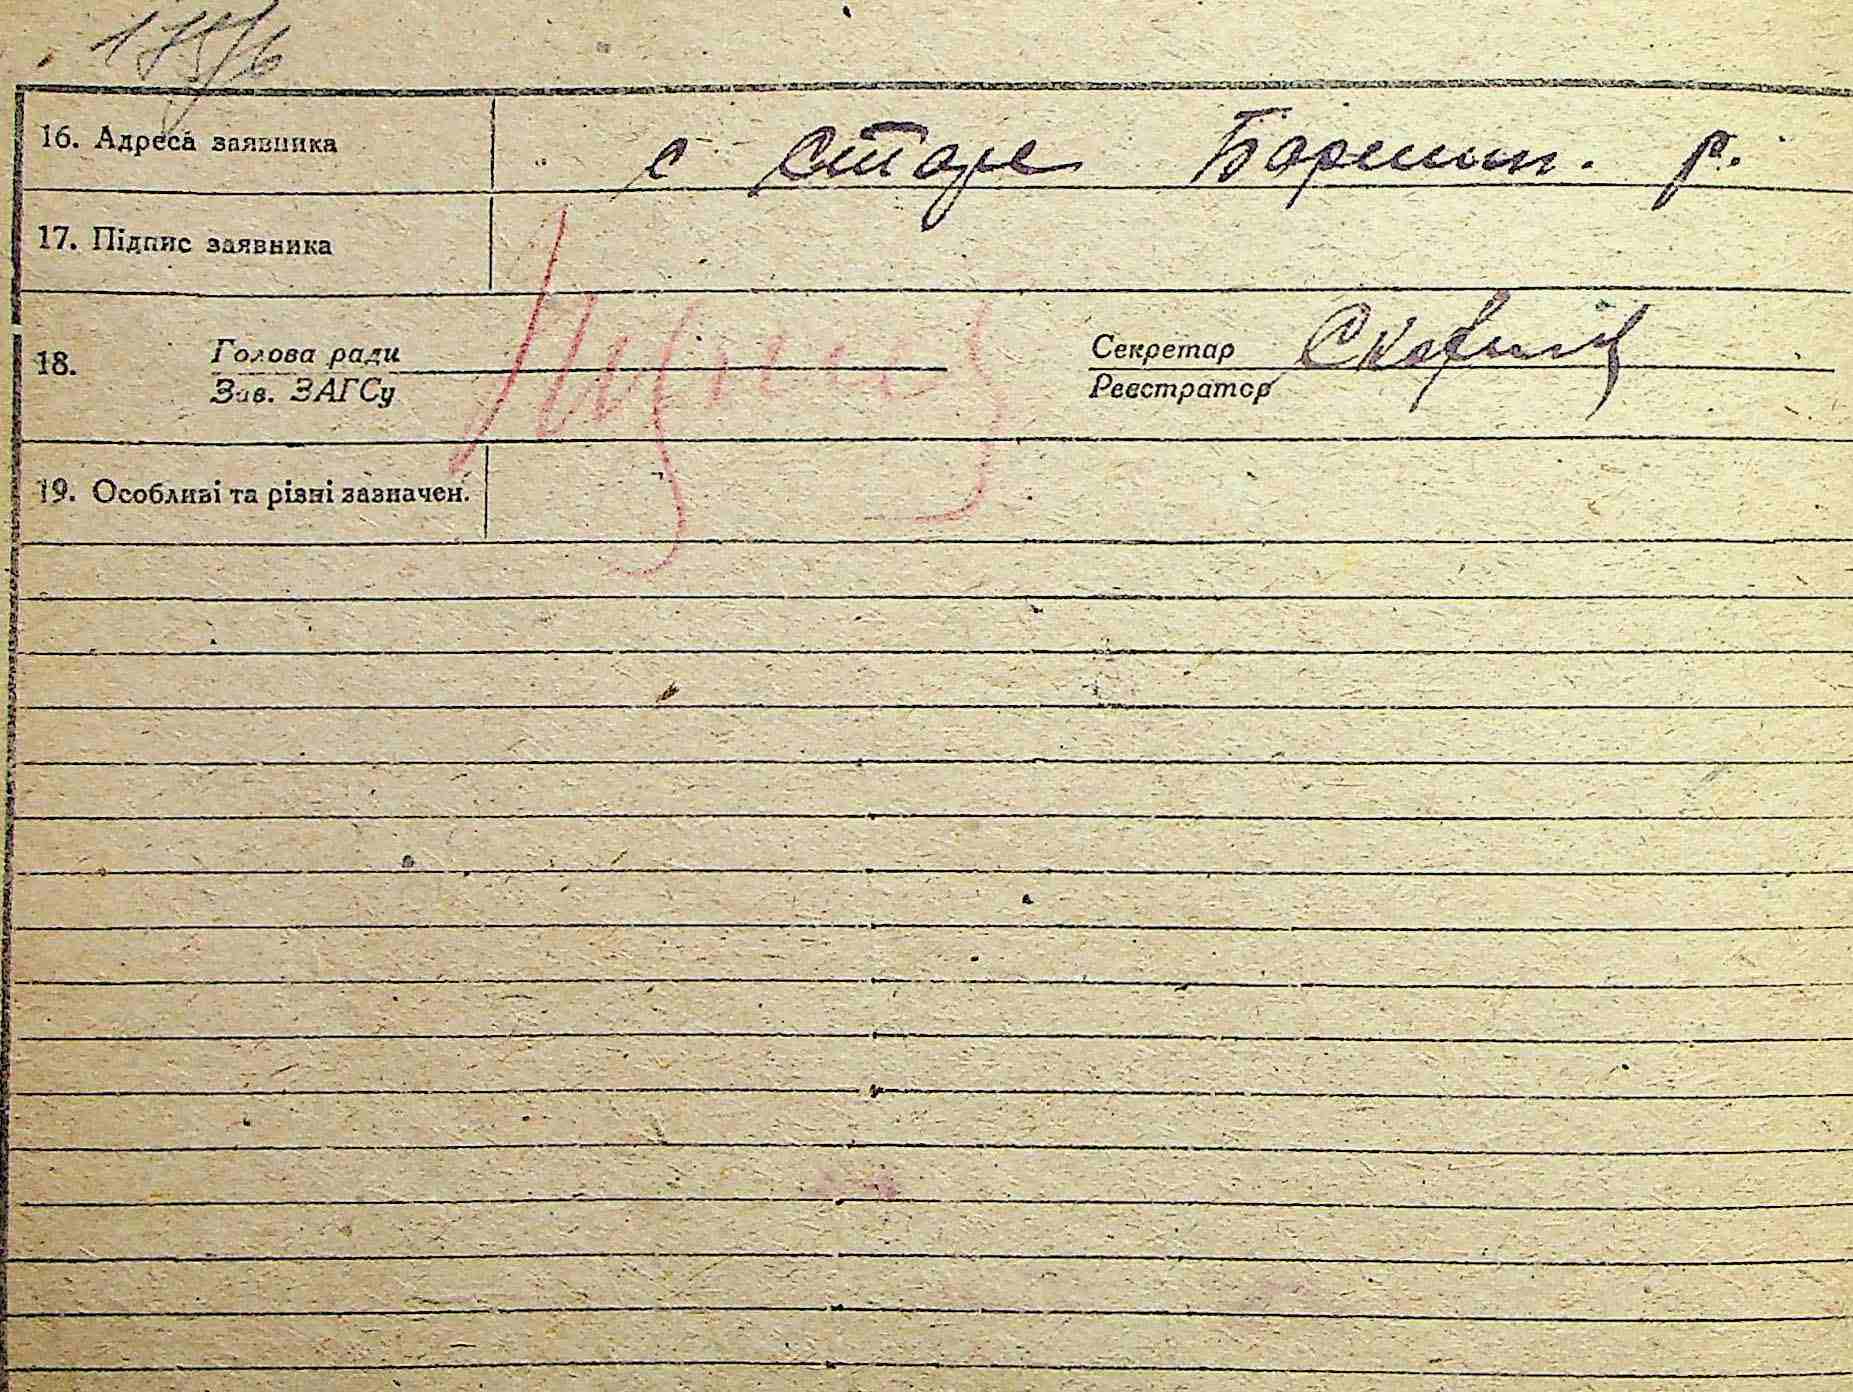 175/6
16. Адреса заявника с Старе Боришп. р.
17. Підпис заявника
18. Голова ради Секретар
Зав. ЗАГСу Реєстратор
19. Особливі та різні зазначен.